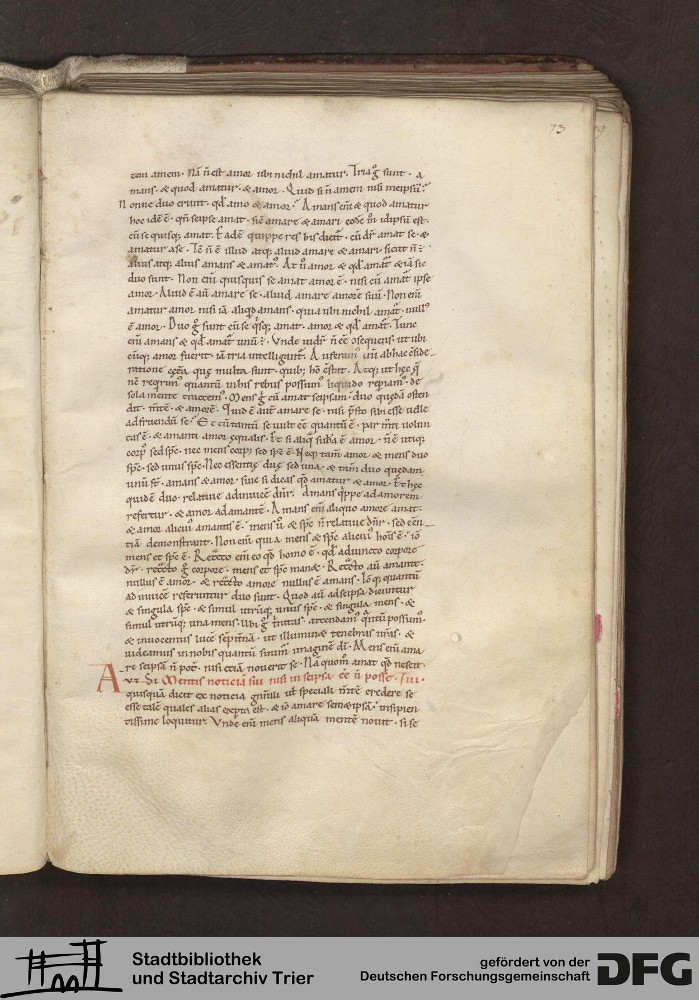 73
tem amem. Nā ñ est amor ubi nichil amatur. Tria g̊ sunt. a
mans. & quod amatur. & amor. Quid si ñ amem nisi meipsū?
Nonne duo erunt. qd̄ amo & amor? Amans eni̅ & quod amatur
hoc idē ē. qn̄ seipse amat. sic̄ amare & amari eodē m̊ idipsū est.
cū se quisq; amat. Eadē quippe res bis dicit̄. cū dr̄ amat se. &
amatur a se. Tc̄ ñ ē aliud atq; aliud amare & amari. sicut ñ ē
alius atq; alius amans & amat᷒. At ů amor & qd̄ amat̄ & iā sic
duo sunt. Non eni̅ quisquis se amat amor ē. nisi cū amat̄ ipse
amor. Aliud ē aū amare se. aliud amare amorē suū. Non eni̅
amatur amor nisi iā aliqd amans. quia ubi nichil amat̄. null᷒
ē amor. Duo g̊ sunt cū se q̇sq; amat. amor & qd̄ amat̄. Tunc
eni̅ amans & qd̄ amat̄ unū ē. Unde uidr̄ ñ ēē c̄sequens. ut ubi
cūq; amor fuerit. iā tria intelligant̄. Auferam᷒ eni̅ ab hac c̄side
ratione cet̄a que multa sunt. quib; hō c̄stat. Atq; ut hec q̄
nc̄ reqrim᷒ quantū in his rebus possum᷒ liquido repiam᷒. de
sola mente tractem᷒. Mens g̊ cū amat seipsam. duo quedā osten
dit. mtē̄. & amorē. Quid ē autē amare se. nisi p̄sto sibi esse uelle
ad fruendū se? Et cū tantū se uult ēē quantū ē. par mti uolun
tas ē. & amanti amor equalis. Et si aliq̄ subā ē amor. ñ ē utiq;
corp᷒ sed sp̄c. nec mens corp᷒ sed sp̄c ē. Neq; tam̄ amor & mens duo
sp̄c. sed unus sp̄c. Nec essentie due sed una. & tam̄ duo quedam
unū st̄. amans & amor. siue si dicas qd̄ amatur & amor. Et hec
quidē duo relatiue adinuicē dn̄r. Amans q̇ppe ad amorem
refertur. & amor ad amantē. Amans eni̅ aliquo amore amat.
& amor alicui᷒ amantis ē. mens ů & sp̄c ñ relatiue dn̄r. sed ēen
tiā demonstrant. Non eni̅ quia mens & sp̄c alicui᷒ hois ē. iō
mens et sp̄c ē. Retracto eni̅ eo qd̄ homo ē. qd̄ adiuncto corpore
dr̄. retracto g̊ corpore. mens et sp̄c man&. Retracto aū amante.
nullus ē amor. & retracto amore nullus ē amans. Iōq; quantū
ad inuicē referuntur duo sunt. Quod aū ad seipsa dicuntur
& singula sp̄c. & simul utrūq; unus sp̄c. & singula mens. &
simul utrūq; una mens. Ubi g̊ t̄nitas. attendam᷒ q̄ntū possum᷒.
& inuocemus lucē sep̄itnā. ut illumin& tenebras n̄ras. &
uideamus in nobis quantū sinim᷒ imaginē di̅. Mens eni̅ ama
re seipsā ñ potē. nisi etiā nouerit se. Nā quom̊ amat qd̄ nescit.
Mentis noticiā sui nisi in seipsa ēē ñ posse. IIII.
Aut Si
quisquā dicit ex noticia gn̄ali ul̄ speciali mtē̄ credere se
esse talē quales alias expta est. & iō amare semetipsā. insipien
tissime loquitur. Unde eni̅ mens aliquā mentē nouit. si se
Stadtbibliothek
und Stadtarchiv Trier
gefördert von der
Deutschen Forschungsgemeinschaft
DFG